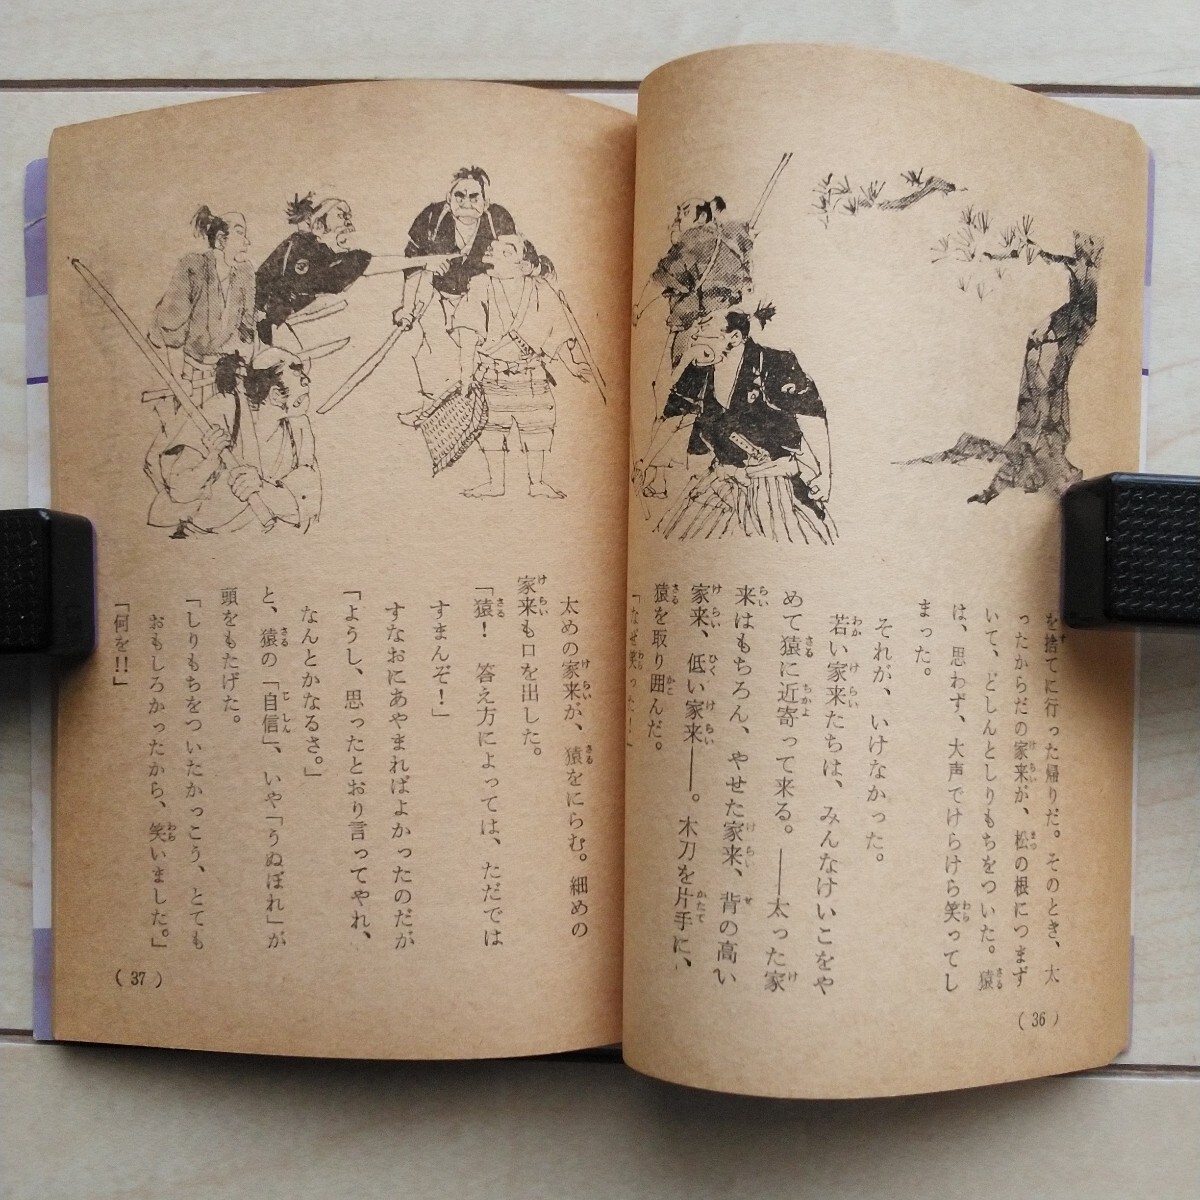 を捨てに行った帰りだ。そのとき、太
ったからだの家来が、松の根につまず
いて、どしんとしりもちをついた。猿
は、思わず、大声でけらけら笑ってし
まった。
それが、いけなかった。
若い家来たちは、みんなけいこをや
めて猿に近寄って来る。――太った家
来はもちろん、やせた家来、背の高い
家来、低い家来――。木刀を片手に、
猿を取り囲んだ。
「なぜ笑った！」
(36)
太めの家来が、猿をにらむ。細めの
家来も口を出した。
「猿！　答え方によっては、ただでは
すまんぞ！」
すなおにあやまればよかったのだが
「ようし、思ったとおり言ってやれ、
なんとかなるさ。」
と、猿の「自信」、いや「うぬぼれ」が
頭をもたげた。
「しりもちをついたかっこう、とても
おもしろかったから、笑いました。」
「何を!!」
(37)